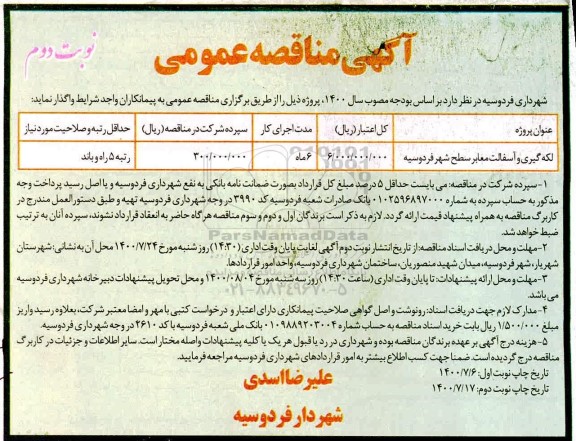 آگهی مناقصه عمومی
نوبت دوم
شهرداری فردوسیه در نظر دارد بر اساس بودجه مصوب سال ۱۴۰۰، پروژه ذیل را از طریق برگزاری مناقصه عمومی به پیمانکاران واجد شرایط واگذار نماید:
عنوان پروژه	کل اعتبار (ریال)	مدت اجرای کار	سپرده شرکت در مناقصه (ریال)	حداقل رتبه و صلاحیت مورد نیاز
لکه گیری و آسفالت معابر سطح شهر فردوسیه	۶/۰۰۰/۰۰۰/۰۰۰	۶ ماه	۳۰۰/۰۰۰/۰۰۰	رتبه ۵ راه و باند
۱- سپرده شرکت در مناقصه: می بایست حداقل ۵ درصد مبلغ کل قرارداد بصورت ضمانت نامه بانکی به نفع شهرداری فردوسیه و یا اصل رسید پرداخت وجه
مذکور به حساب سپرده به شماره ۰۱۰۲۵۹۶۸۹۷۰۰۰ بانک صادرات شعبه فردوسیه کد ۳۹۹۰ در وجه شهرداری فردوسیه تهیه و طبق دستورالعمل مندرج در
کاربرگ مناقصه به همراه پیشنهاد قیمت ارائه گردد. لازم به ذکر است برندگان اول و دوم و سوم مناقصه هرگاه حاضر به انعقاد قرارداد نشوند، سپرده آنان به ترتیب
ضبط خواهد شد.
۲- مهلت و محل دریافت اسناد مناقصه: از تاریخ انتشار نوبت دوم آگهی لغایت پایان وقت اداری (۱۴:۳۰) روز شنبه مورخ ۱۴۰۰/۷/۲۴ محل آن به نشانی: شهرستان
شهریار، شهر فردوسیه، میدان شهید منصوریان، ساختمان شهرداری فردوسیه، واحد امور قراردادها.
۳- مهلت و محل ارائه پیشنهادات: تا پایان وقت اداری (ساعت ۱۴:۳۰) روز سه شنبه مورخ ۱۴۰۰/۰۸/۰۴ و محل تحویل پیشنهادات دبیرخانه شهرداری فردوسیه
می باشد.
۴- مدارک لازم جهت دریافت اسناد: رونوشت و اصل گواهی صلاحیت پیمانکاری دارای اعتبار و درخواست کتبی با مهر و امضا معتبر شرکت، بعلاوه رسید واریز
مبلغ ۱/۵۰۰/۰۰۰ ریال بابت خرید اسناد مناقصه به حساب شماره ۰۱۰۹۸۸۹۲۰۳۰۰۴ بانک ملی شعبه فردوسیه با کد ۲۶۱۰ در وجه شهرداری فردوسیه.
۵- هزینه درج آگهی بر عهده برندگان مناقصه بوده و شهرداری در رد یا قبول هر یک یا کلیه پیشنهادات واصله مختار است. سایر اطلاعات و جزئیات در کاربرگ
مناقصه درج گردیده است. ضمنا جهت کسب اطلاع بیشتر به امور قراردادهای شهرداری فردوسیه مراجعه فرمایید.
تاریخ چاپ نوبت اول: ۱۴۰۰/۷/۶
تاریخ چاپ نوبت دوم: ۱۴۰۰/۷/۱۷
علیرضا اسدی
شهردار فردوسیه
ParsNamadData
۰۲۱-۸۸۳۴۹۶۷۰-۵